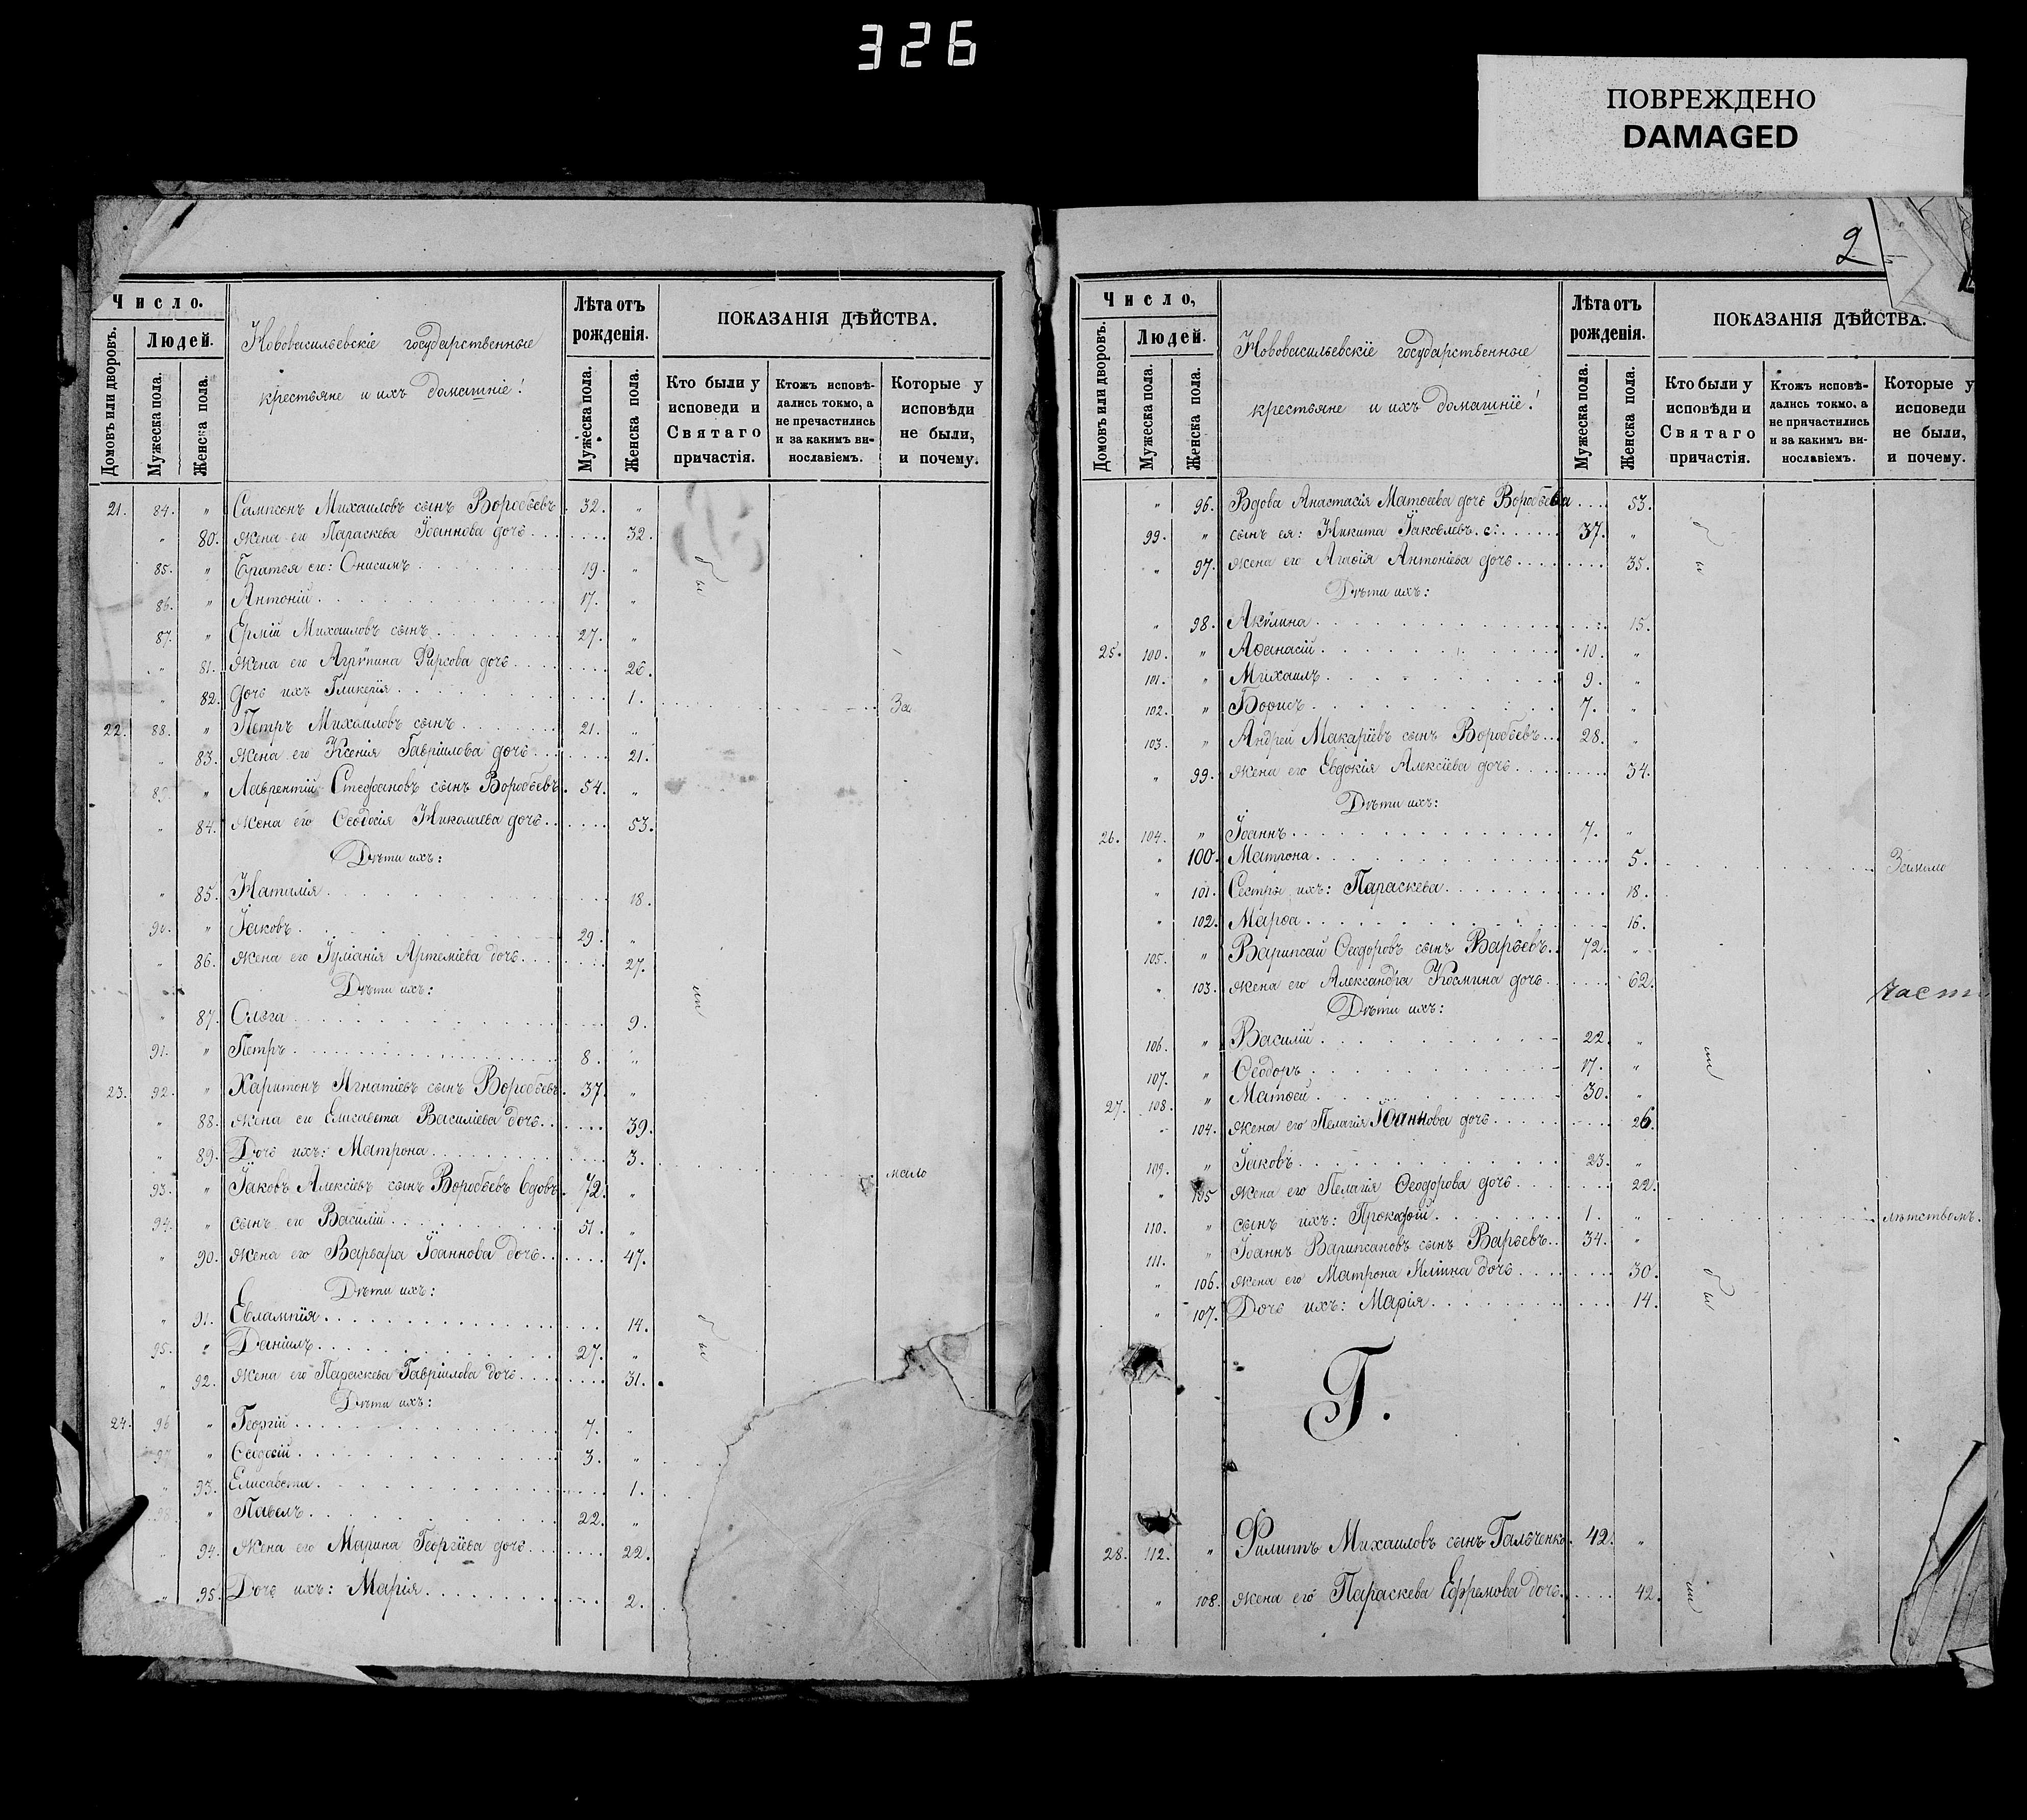 326
ПОВРЕЖДЕНО
DAMAGED
Число.
Домовъ или дворовъ.
Людей.
Мужеска пола.
Женска пола.
Нововасильевскіе государственные
крестьяне и ихъ домашніе!
Лѣта отъ
рожденія.
Мужеска пола.
Женска пола.
ПОКАЗАНІЯ ДѢЙСТВА.
Кто были у
исповеди и
Святаго
причастія.
Ктожъ исповѣ-
дались токмо, а
не пречастились
и за какимъ ви-
нославіемъ.
Которые у
исповѣди
не были,
и почему.
21. 84. " Сампсонъ Михаиловъ сынъ Воробьевъ. 32. "
" 80. жена его Параскева Іоаннова дочь. 32.
85. " Братья его: Онисимъ 19. "
86. " Антоній 17. "
87. " Ермій Михаиловъ сынъ 27. "
" 81. жена его Агрѵпина Фирсова дочь 26.
" 82. дочь ихъ Гликерія 1. За
22. 88. " Петръ Михаиловъ сынъ 21. "
" 83. жена его Ксенія Гавріилова дочь 21.
" Лаврентій Стефановъ сынъ Воробьевъ. 54. "
" 84. жена его Ѳеодосія Николаева дочь 53.
Дѣти ихъ:
" 85. Наталія 18.
90. " Іаковъ 29. "
" 86. жена его Іуліанія Артеміева дочь 27.
Дѣти ихъ:
" 87. Ольга 9.
91. " Петръ 8. "
23. 92. " Харитонъ Игнатіевъ сынъ Воробьевъ. 37. "
" 88. жена его Елисавета Василіева дочь 39.
" 89. Дочь ихъ: Матрона 3. мало
93. " Іаковъ Алексіевъ сынъ Воробьевъ вдовъ. 72. "
94. " сынъ его Василій 51. "
" 90. жена его Варвара Іоаннова дочь 47.
Дѣти ихъ:
" 91. Евлампія 14.
95. " Даніилъ 27. "
" 92. жена его Параскева Гавріилова дочь 31.
Дѣти ихъ:
24. 96 " Георгій 7. "
97 " Ѳеодосій 3. "
" 93. Елисавета 1.
" Павелъ 22. "
94. жена его Марина Георгіева дочь 22.
" 95. Дочь ихъ: Марія 2.
бы
ли
бы
2
Число,
Домовъ или дворовъ.
Людей.
Мужеска пола.
Женска пола.
Нововасильевскіе государственные
крестьяне и ихъ домашніе!
Лѣта отъ
рожденія.
Мужеска пола.
Женска пола.
ПОКАЗАНІЯ ДѢЙСТВА.
Кто были у
исповѣди и
Святаго
причастія.
Ктожъ исповѣ-
дались токмо, а
не причастились
и за какимъ ви-
нославіемъ.
Которые у
исповеди
не были,
и почему.
" 96. Вдова Анастасія Матѳеева дочь Воробьева 53.
99. " сынъ ея: Никита Іаковлевъ. с. 37. "
" 97. жена его Агаѳія Антоніева дочь 35.
Дѣти ихъ:
" 98. Акѵлина 15.
25. 100. " Аѳанасій 10. "
101. " Михаилъ 9. "
102. " Борисъ 7. "
103. " Андрей Макаріевъ сынъ Воробьевъ 28. "
" 99. жена его Евдокія Алексіева дочь 34.
Дѣти ихъ:
26. 104. " Іоаннъ 7. "
" 100. Матрона 5. Замало
" 101. Сестры ихъ: Параскева 18.
" 102. Марѳа 16.
105. " Варипсаи Ѳеодоровъ сынъ Варьевъ. 72. "
" 103. жена его Александра Космина дочь 62.
Дѣти ихъ:
106. " Василій 22. "
107. " Ѳеодоръ 17. "
27. 108. " Матѳей 30. "
" 104. жена его Пелагія Іоаннова дочь 26.
109. " Іаковъ 23. "
" 105 жена его Пелагія Ѳеодорова дочь 22.
110. " сынъ ихъ: Прокофій 1. " лѣтствомъ.
111. " Іоаннъ Варипсановъ сынъ Варьевъ. 34. "
" 106. жена его Матрона Иліина дочь 30.
" 107. Дочь ихъ: Марія 14.
Г.
28. 112. " Филиппъ Михаиловъ сынъ Гальченко. 42. "
" 108. жена его Параскева Ефремова дочь. 42.
бы
ли
бы
ли